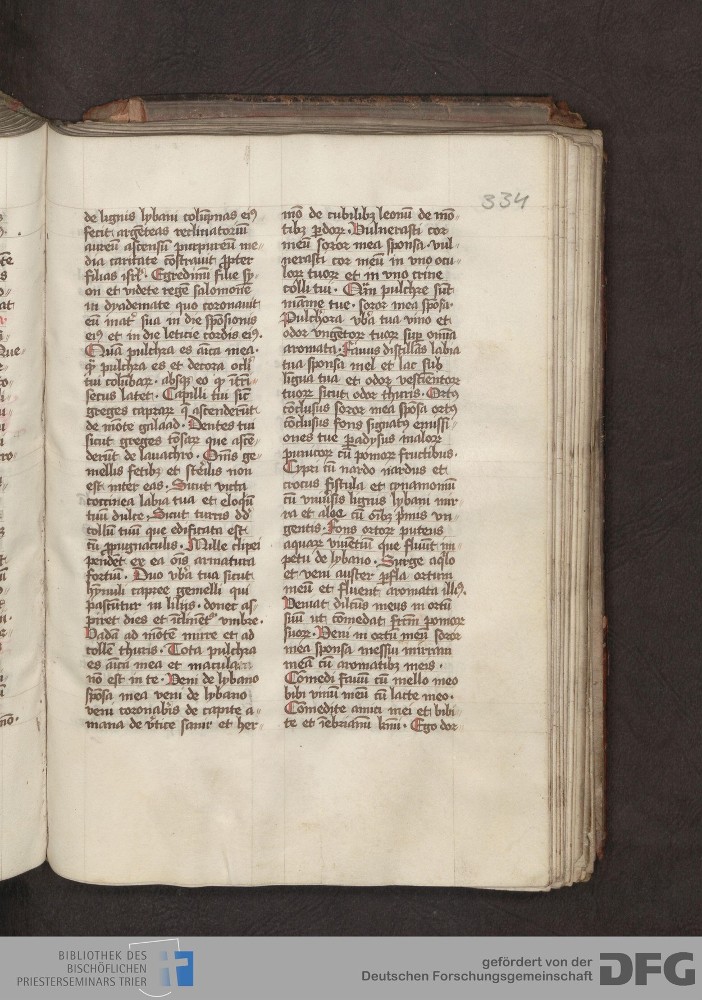 334
de lignis lybani colūpnas eiꝰ
fecit argēteas reclinatoriū
aureū ascensū purpureū me
dia caritate cōstrauit ꝓpter
filias isrl̓. Egredimī filie sy
on et videte regē salomonē
in dyademate quo coronauit
eū mat̓ sua in die spōsionis
eiꝰ et in die leticie cordis eiꝰ.
Quā pulchra es aīca mea.
q̄ pulchra es et decora oc̄li
tui colūbaꝝ. absqꝫ eo qͥ ītrī
secus latet. Capilli tui sic̄
greges capraꝝ q̄ ascenderūt
de mōte galaad. Dentes tui
sicut greges tōsaꝝ que ascē
derūt de lauachro. Om̄s ge
mellis fetibꝫ et sterilis non
est inter eas. Sicut vitta
coccinea labia tua et eloqͥū
tuū dulce. Sicut turris dd̄
collū tuū que edificata est
cū ꝓpugnaculis. Mille clipei
pendēt ex ea oīs armatura
fortiū. Duo vb̓a tua sicut
hynnuli capree gemelli qui
pascūtur in lilijs. donec as
piret dies et īclinēt̓ vmbre.
Vadā ad mōtē mirre et ad
collē thuris. Tota pulchra
es aīca mea et macula
nō est in te. Veni de lybano
spōsa mea veni de lybano
veni coronab̓is de capite a
mana de v̓tice sanir et her
mō de cubilibꝫ leonū de mō
tibꝫ p̄doꝝ. Vulnerasti cor
meū soror mea sponsa. vul
nerasti cor meū in vno ocu
loꝝ tuoꝝ et in vno crine
colli tui. Qͣm pulchre sūt
mām̄e tue. soror mea spōsa.
Pulch̓ora vb̓a tua vino et
odor vngētoꝝ tuoꝝ sup̄ oīa
aromata. Fauus distillās labia
tua sponsa mel et lac sub
ligua tua et odor vestīentoꝝ
tuoꝝ sicut odor thuris. Ortꝰ
cōclusus soror mea spōsa ortꝰ
cōclusus fons signatꝰ emissi
ones tue ꝑadysus maloꝝ
punicoꝝ cū pomoꝝ fructibus.
Cypri cū nardo nardus et
crocus fistula et cynamomū
cū vniūsis lignis lybani mir
ra et aloe cū oībꝫ p̄mis vn
gentis. Fons ortoꝝ puteus
aquaꝝ viuētiū que fluūt im
petu de lybano. Surge aqͥlo
et veni auster ꝑfla ortum
meū et fluent aromata illiꝰ.
Veniat dilc̄us meus in ortū
suū ut comedat fr̄m pomoꝝ
suoꝝ. Veni in ortū meū soror
mea sponsa messui mirram
meā cū aromatibꝫ meis.
Comedi fauū cū mello meo
bibi vinū meū cū lacte meo.
Comedite amici mei et bibi
te et īebriamī kmī. Ego dor
BIBLIOTHEK DES
BISCHÖFLICHEN
PRIESTERSEMINARS TRIER
gefördert von der
Deutschen Forschungsgemeinschaft
DFG